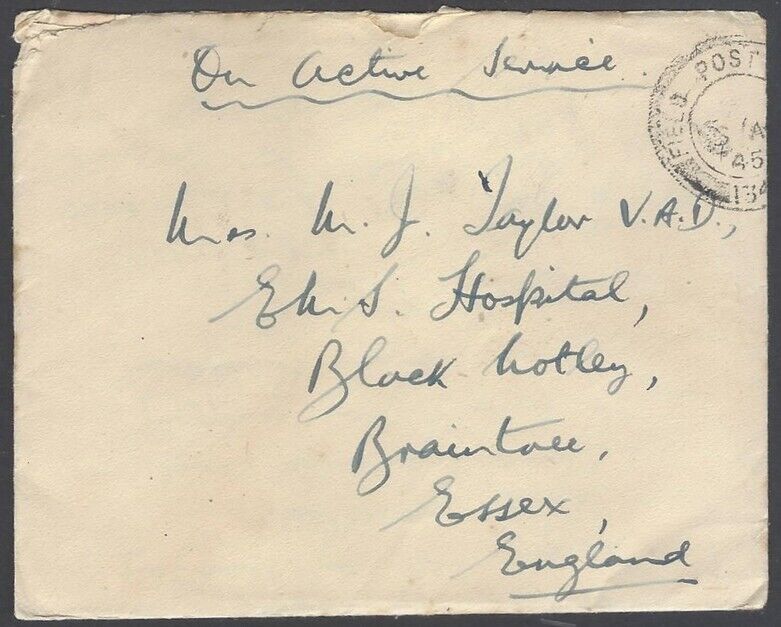 On Active Service.
FIELD POST
A45
134
Mrs. M. J. Taylor V.A.D.,
E.M.S. Hospital,
Black Notley,
Braintree,
Essex,
England